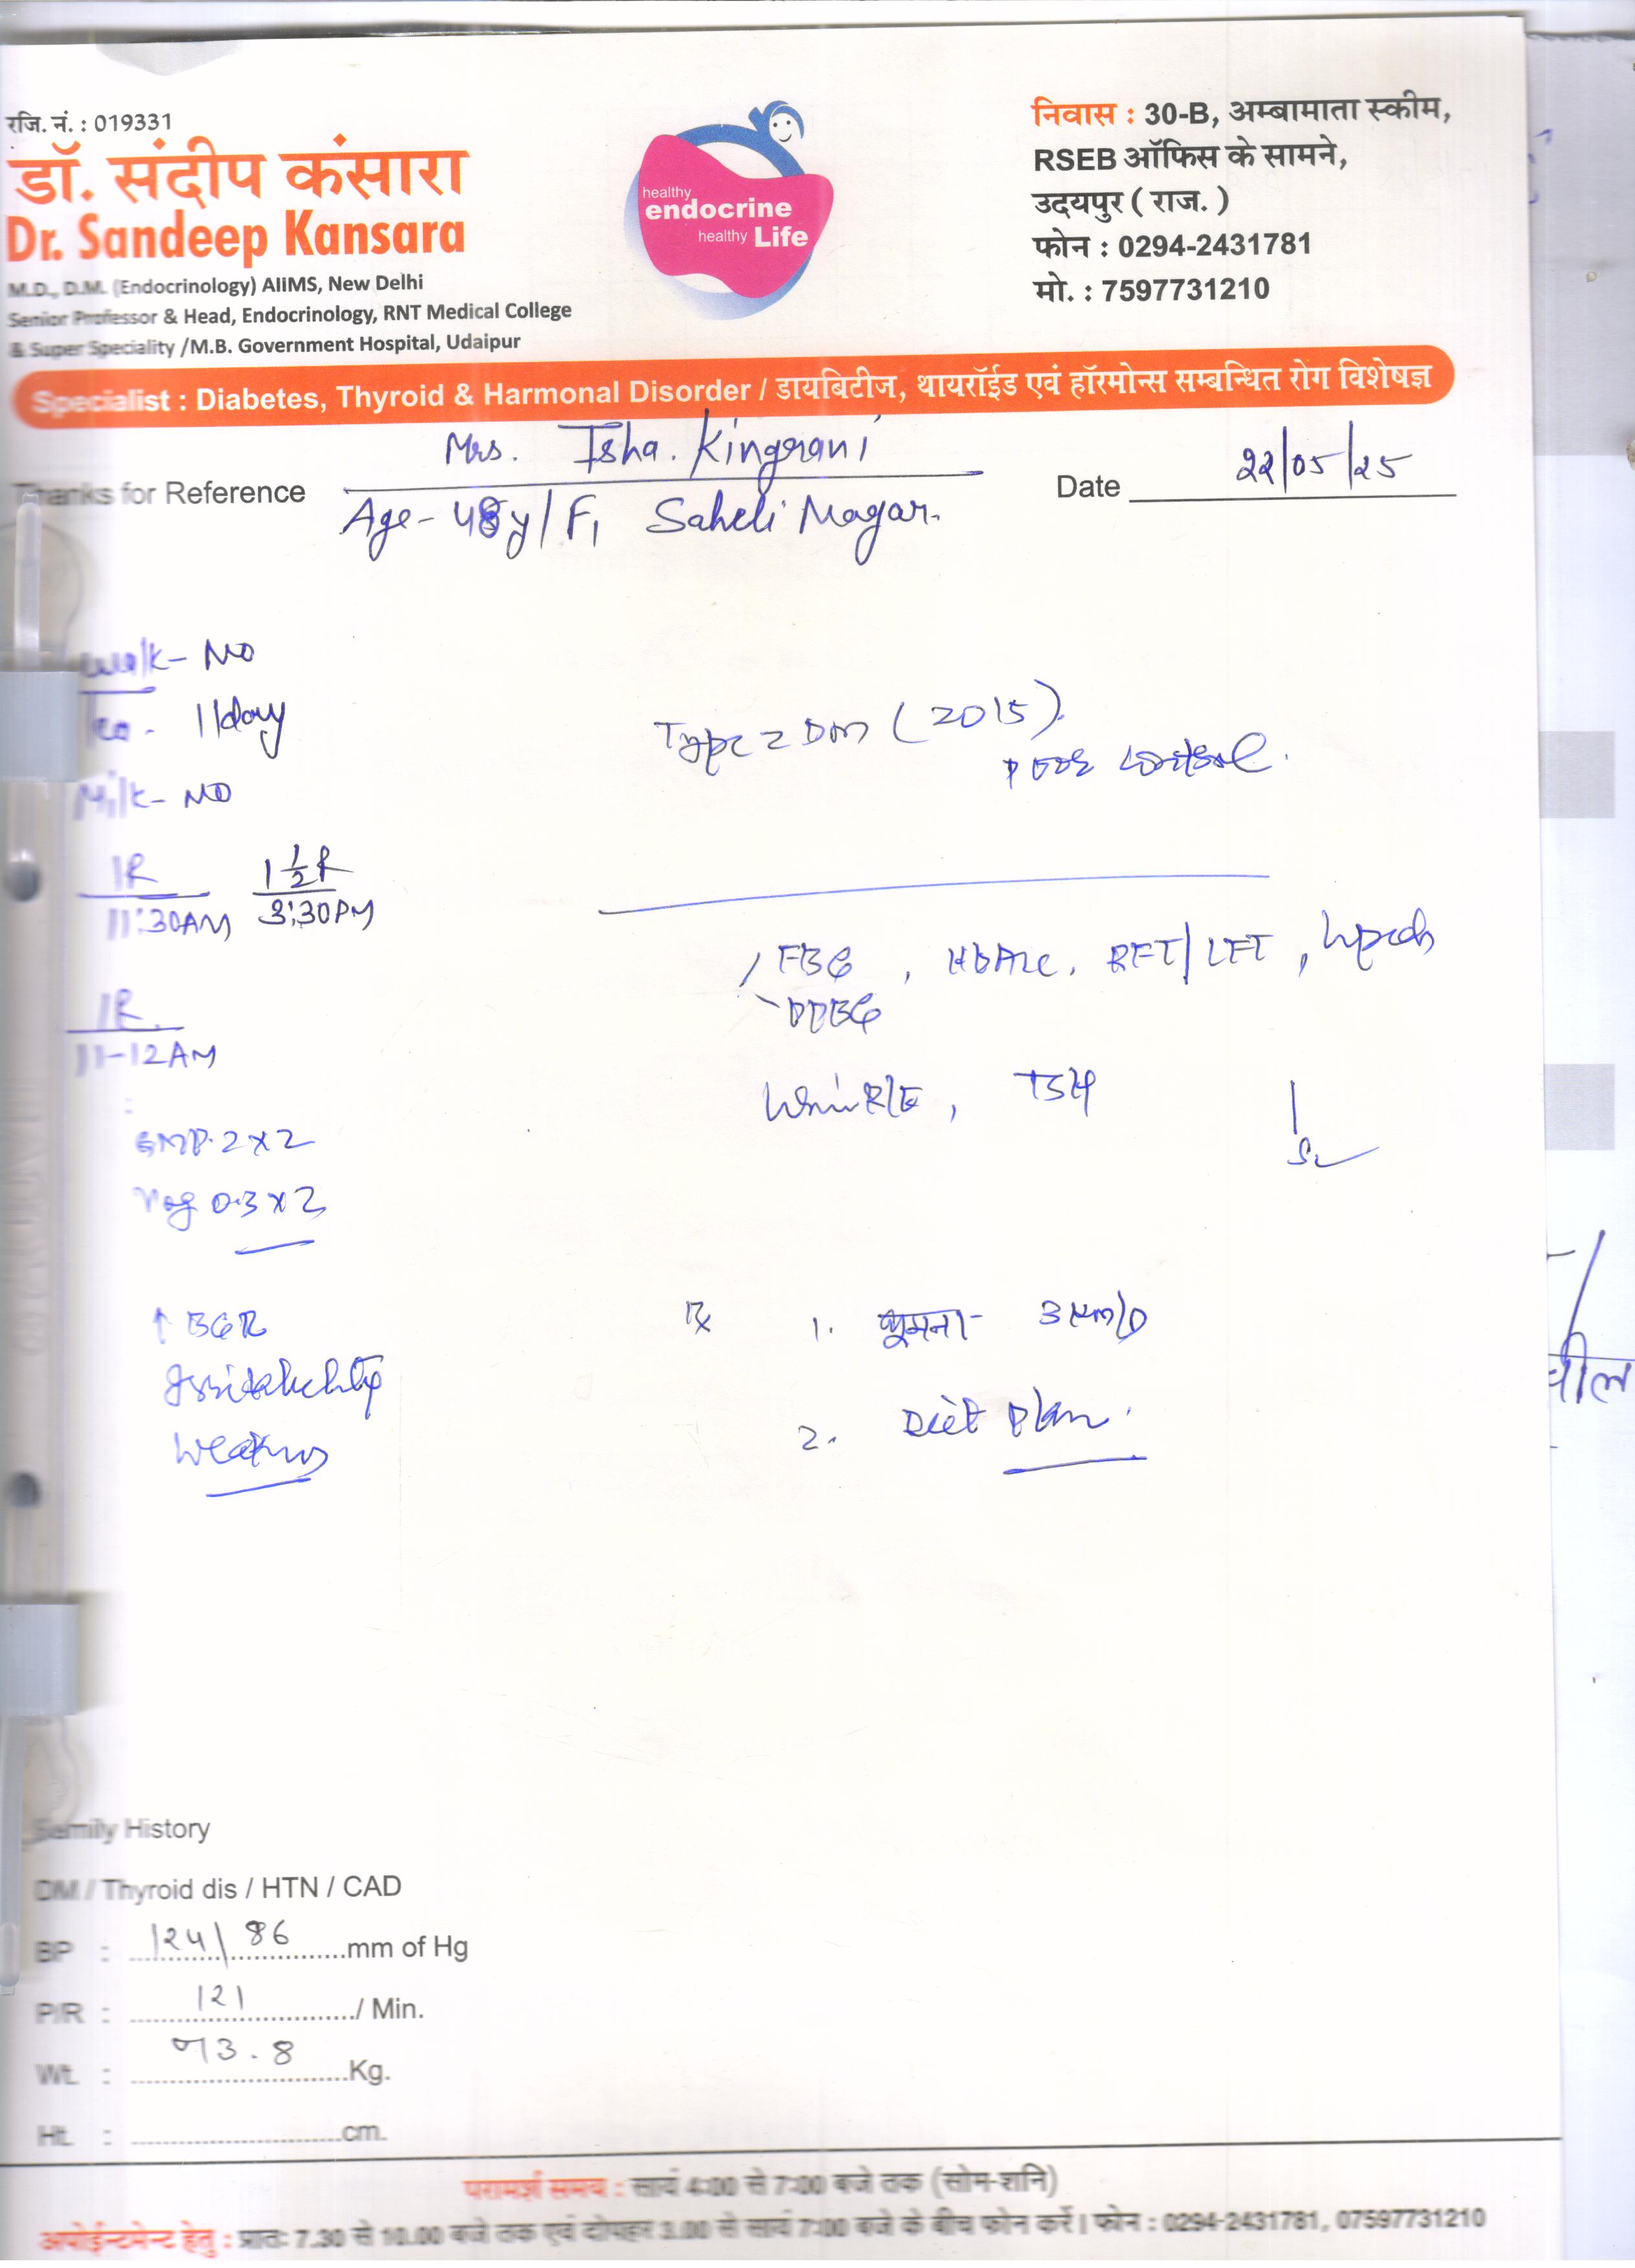 रजि. नं. : 019331
डॉ. संदीप कंसारा
Dr. Sandeep Kansara
M.D., D.M. (Endocrinology) AIIMS, New Delhi
Senior Professor & Head, Endocrinology, RNT Medical College
& Super Speciality /M.B. Government Hospital, Udaipur
healthy
endocrine
healthy Life
निवास : 30-B, अम्बामाता स्कीम,
RSEB ऑफिस के सामने,
उदयपुर ( राज. )
फोन : 0294-2431781
मो. : 7597731210
Specialist : Diabetes, Thyroid & Harmonal Disorder / डायबिटीज, थायरॉईड एवं हॉरमोन्स सम्बन्धित रोग विशेषज्ञ
Thanks for Reference Mrs. Isha. Kingrani
Date 22/05/25
Age - 48y/F, Saheli Nagar.
Walk - NO
1/day
Milk - NO
Type 2 DM (2015)
poor control.
1R 1 1/2 R
11:30AM 3:30PM
FBG, HbA1c, RFT/LFT, Lipids
PPBG
1R
11-12AM
Urine R/E, TSH
GMP 2 x 2
Vog 0.3 x 2
↑ BGR
Irritability
Weakness
Rx 1. घूमना - 3 km/D
2. Diet Plan.
Family History
DM / Thyroid dis / HTN / CAD
BP : 124/86 mm of Hg
P/R : 121 / Min.
Wt. : 73.8 Kg.
Ht. : cm.
परामर्श समय : सायं 4:00 से 7:00 बजे तक (सोम-शनि)
अपोईन्टमेन्ट हेतु : प्रातः 7.30 से 10.00 बजे तक एवं दोपहर 3.00 से सायं 7:00 बजे के बीच फोन करें। फोन : 0294-2431781, 07597731210